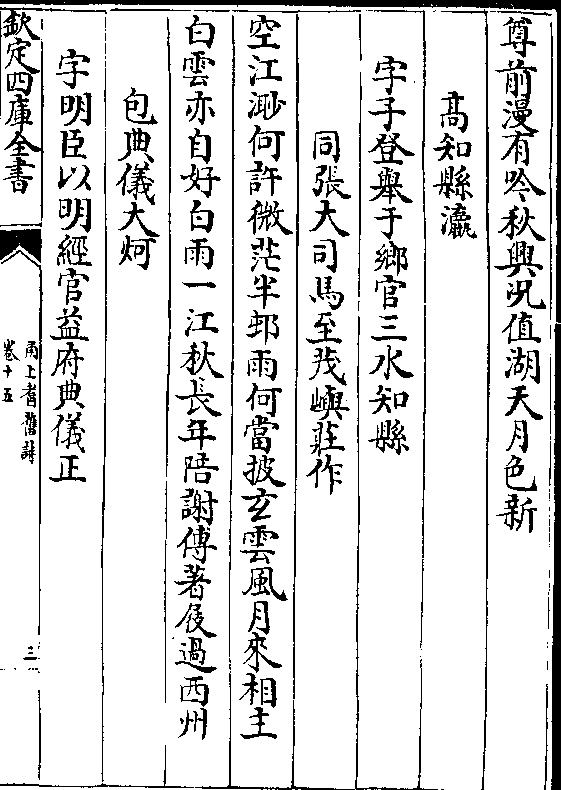 尊前漫有吟秋興況值湖天月色新
高知縣瀛
字子登舉于鄉官三水知縣
同張大司馬至茂嶼莊作
空江渺何許微茫半邨雨何當披玄雲風月來相主
白雲亦自好白雨一江秋長年陪謝傅著屐過西州
包典儀大炣
字明臣以明經官益府典儀正
欽定四庫全書
甬上耆舊詩
卷十五
三